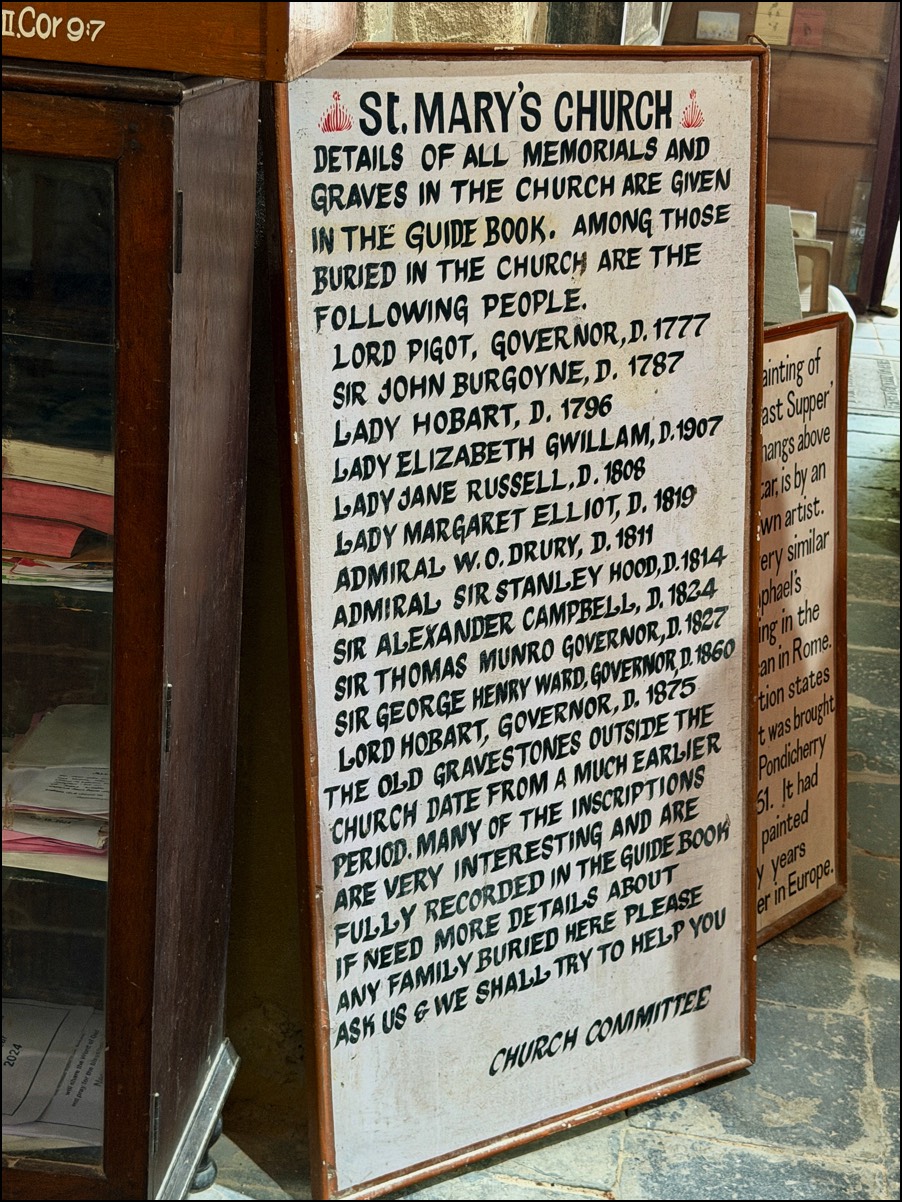 II.Cor 9:7
St. MARY'S CHURCH
DETAILS OF ALL MEMORIALS AND
GRAVES IN THE CHURCH ARE GIVEN
IN THE GUIDE BOOK. AMONG THOSE
BURIED IN THE CHURCH ARE THE
FOLLOWING PEOPLE.
LORD PIGOT, GOVERNOR, D. 1777
SIR JOHN BURGOYNE, D. 1787
LADY HOBART, D. 1796
LADY ELIZABETH GWILLAM, D. 1907
LADY JANE RUSSELL, D. 1808
LADY MARGARET ELLIOT, D. 1819
ADMIRAL W.O. DRURY, D. 1811
ADMIRAL SIR STANLEY HOOD, D. 1814
SIR ALEXANDER CAMPBELL, D. 1824
SIR THOMAS MUNRO GOVERNOR, D. 1827
SIR GEORGE HENRY WARD, GOVERNOR, D. 1860
LORD HOBART, GOVERNOR, D. 1875
THE OLD GRAVESTONES OUTSIDE THE
CHURCH DATE FROM A MUCH EARLIER
PERIOD. MANY OF THE INSCRIPTIONS
ARE VERY INTERESTING AND ARE
FULLY RECORDED IN THE GUIDE BOOK
IF NEED MORE DETAILS ABOUT
ANY FAMILY BURIED HERE PLEASE
ASK US & WE SHALL TRY TO HELP YOU
CHURCH COMMITTEE
ainting of
ast Supper'
hangs above
tar, is by an
wn artist.
ery similar
phael's
ing in the
an in Rome.
tion states
t was brought
Pondicherry
61. It had
painted
y years
er in Europe.
2024